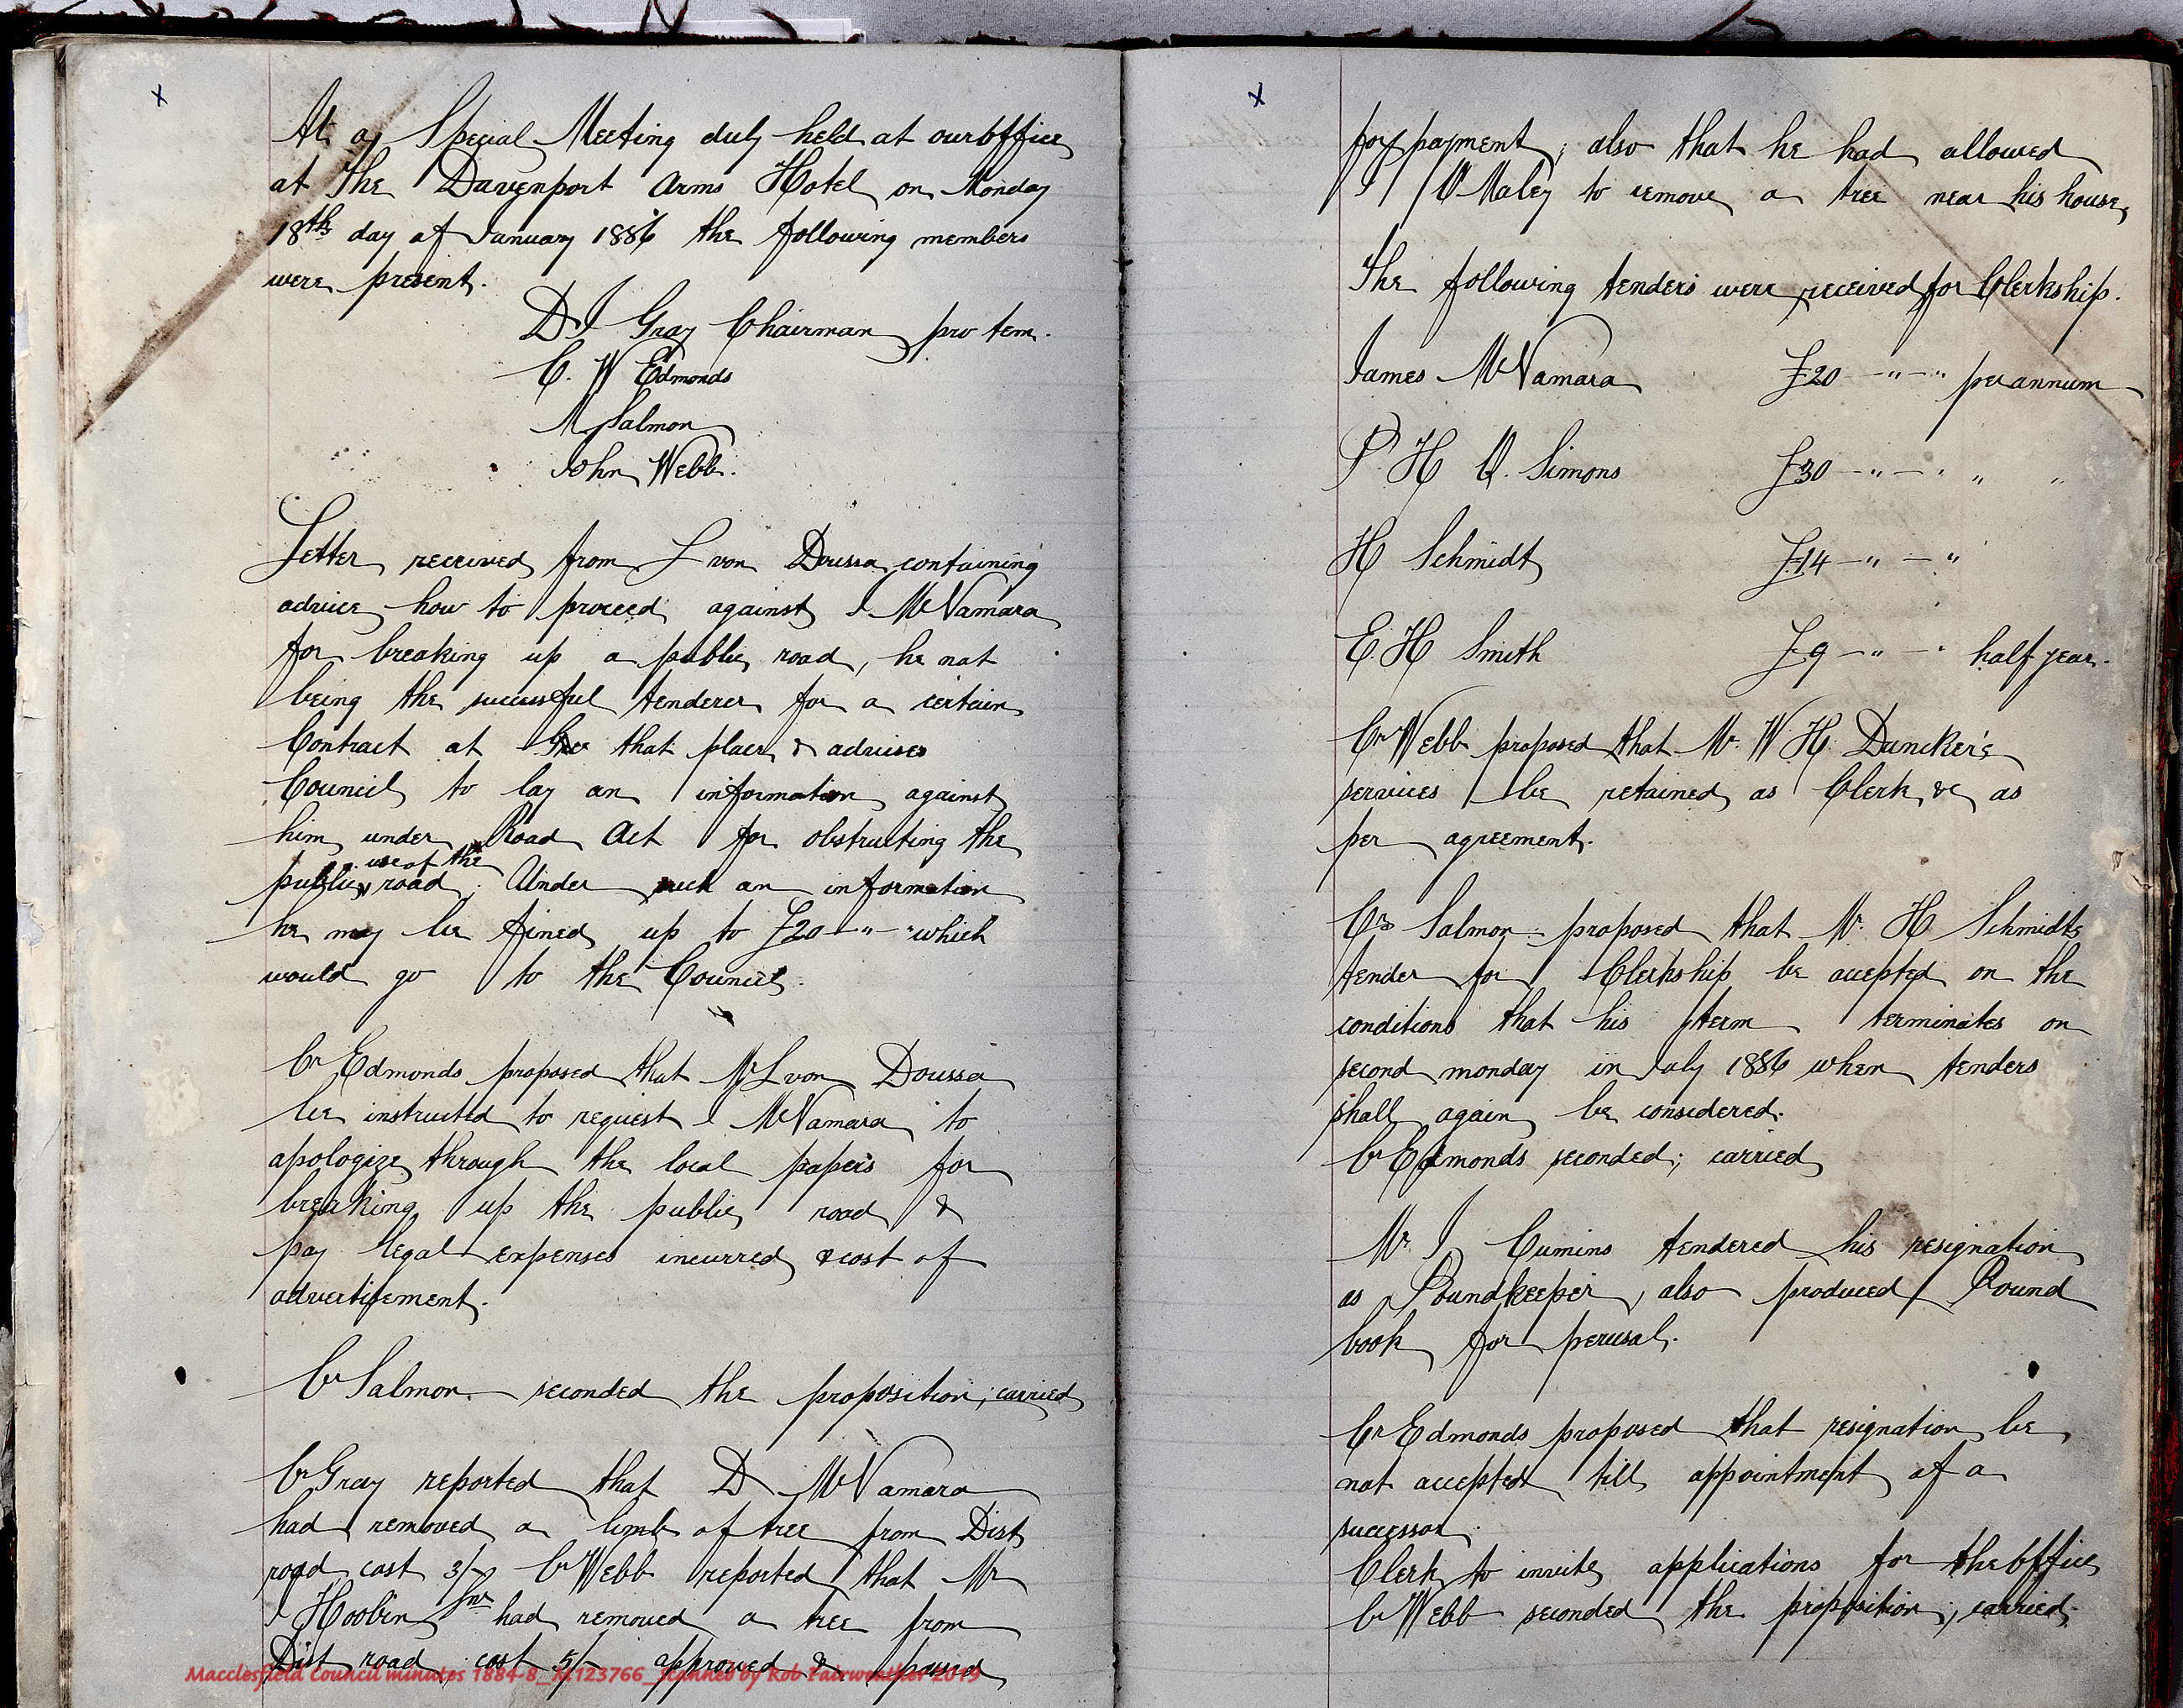 x
At a Special Meeting duly held at our Office
at The Davenport Arms Hotel on Monday
18th day of January 1886 the following members
were present.
D J Gray Chairman pro tem.
C. W Edmonds
M Salmon
John Webb.
Letter received from L von Doussa containing
advice how to proceed against J McNamara
for breaking up a public road, he not
being the successful tenderer for a certain
Contract at that place & advises
Council to lay an information against
him under Road Act for obstructing the
use of the
public road. Under such an information
he may be fined up to £20 – " – " which
would go to the Council.
Cr Edmonds proposed that Mr L von Doussa
be instructed to request J McNamara to
apologize through the local papers for
breaking up the public road &
pay legal expenses incurred & cost of
advertisement.
Cr Salmon seconded the proposition; carried
Cr Gray reported that D McNamara
had removed a limb of tree from Dist
road cost 3/- Cr Webb reported that Mr
J Hoobin Snr had removed a tree from
Dist road cost 5/- approved & passed
Macclesfield Council minutes 1884-8_M123766_scanned by Rob Fairweather 2019
x
for payment; also that he had allowed
O'Maley to remove a tree near his house,
The following tenders were received for Clerkship.
James McNamara £20 – " – " per annum
P. H O. Simons £30 – " – " " "
H Schmidt £14 – " – "
E. H Smith £9 – " – " half year.
Cr Webb proposed that Mr. W H Duncker's
services be retained as Clerk &c as
per agreement.
Cr Salmon proposed that Mr. H Schmidts
tender for Clerkship be accepted on the
conditions that his term terminates on
second monday in July 1886 when tenders
shall again be considered.
Cr Edmonds seconded; carried
Mr. J Cumins tendered his resignation
as Poundkeeper, also produced Pound
book for perusal.
Cr Edmonds proposed that resignation be
not accepted till appointment of a
successor.
Clerk to invite applications for the Office
Cr Webb seconded the proposition; carried.